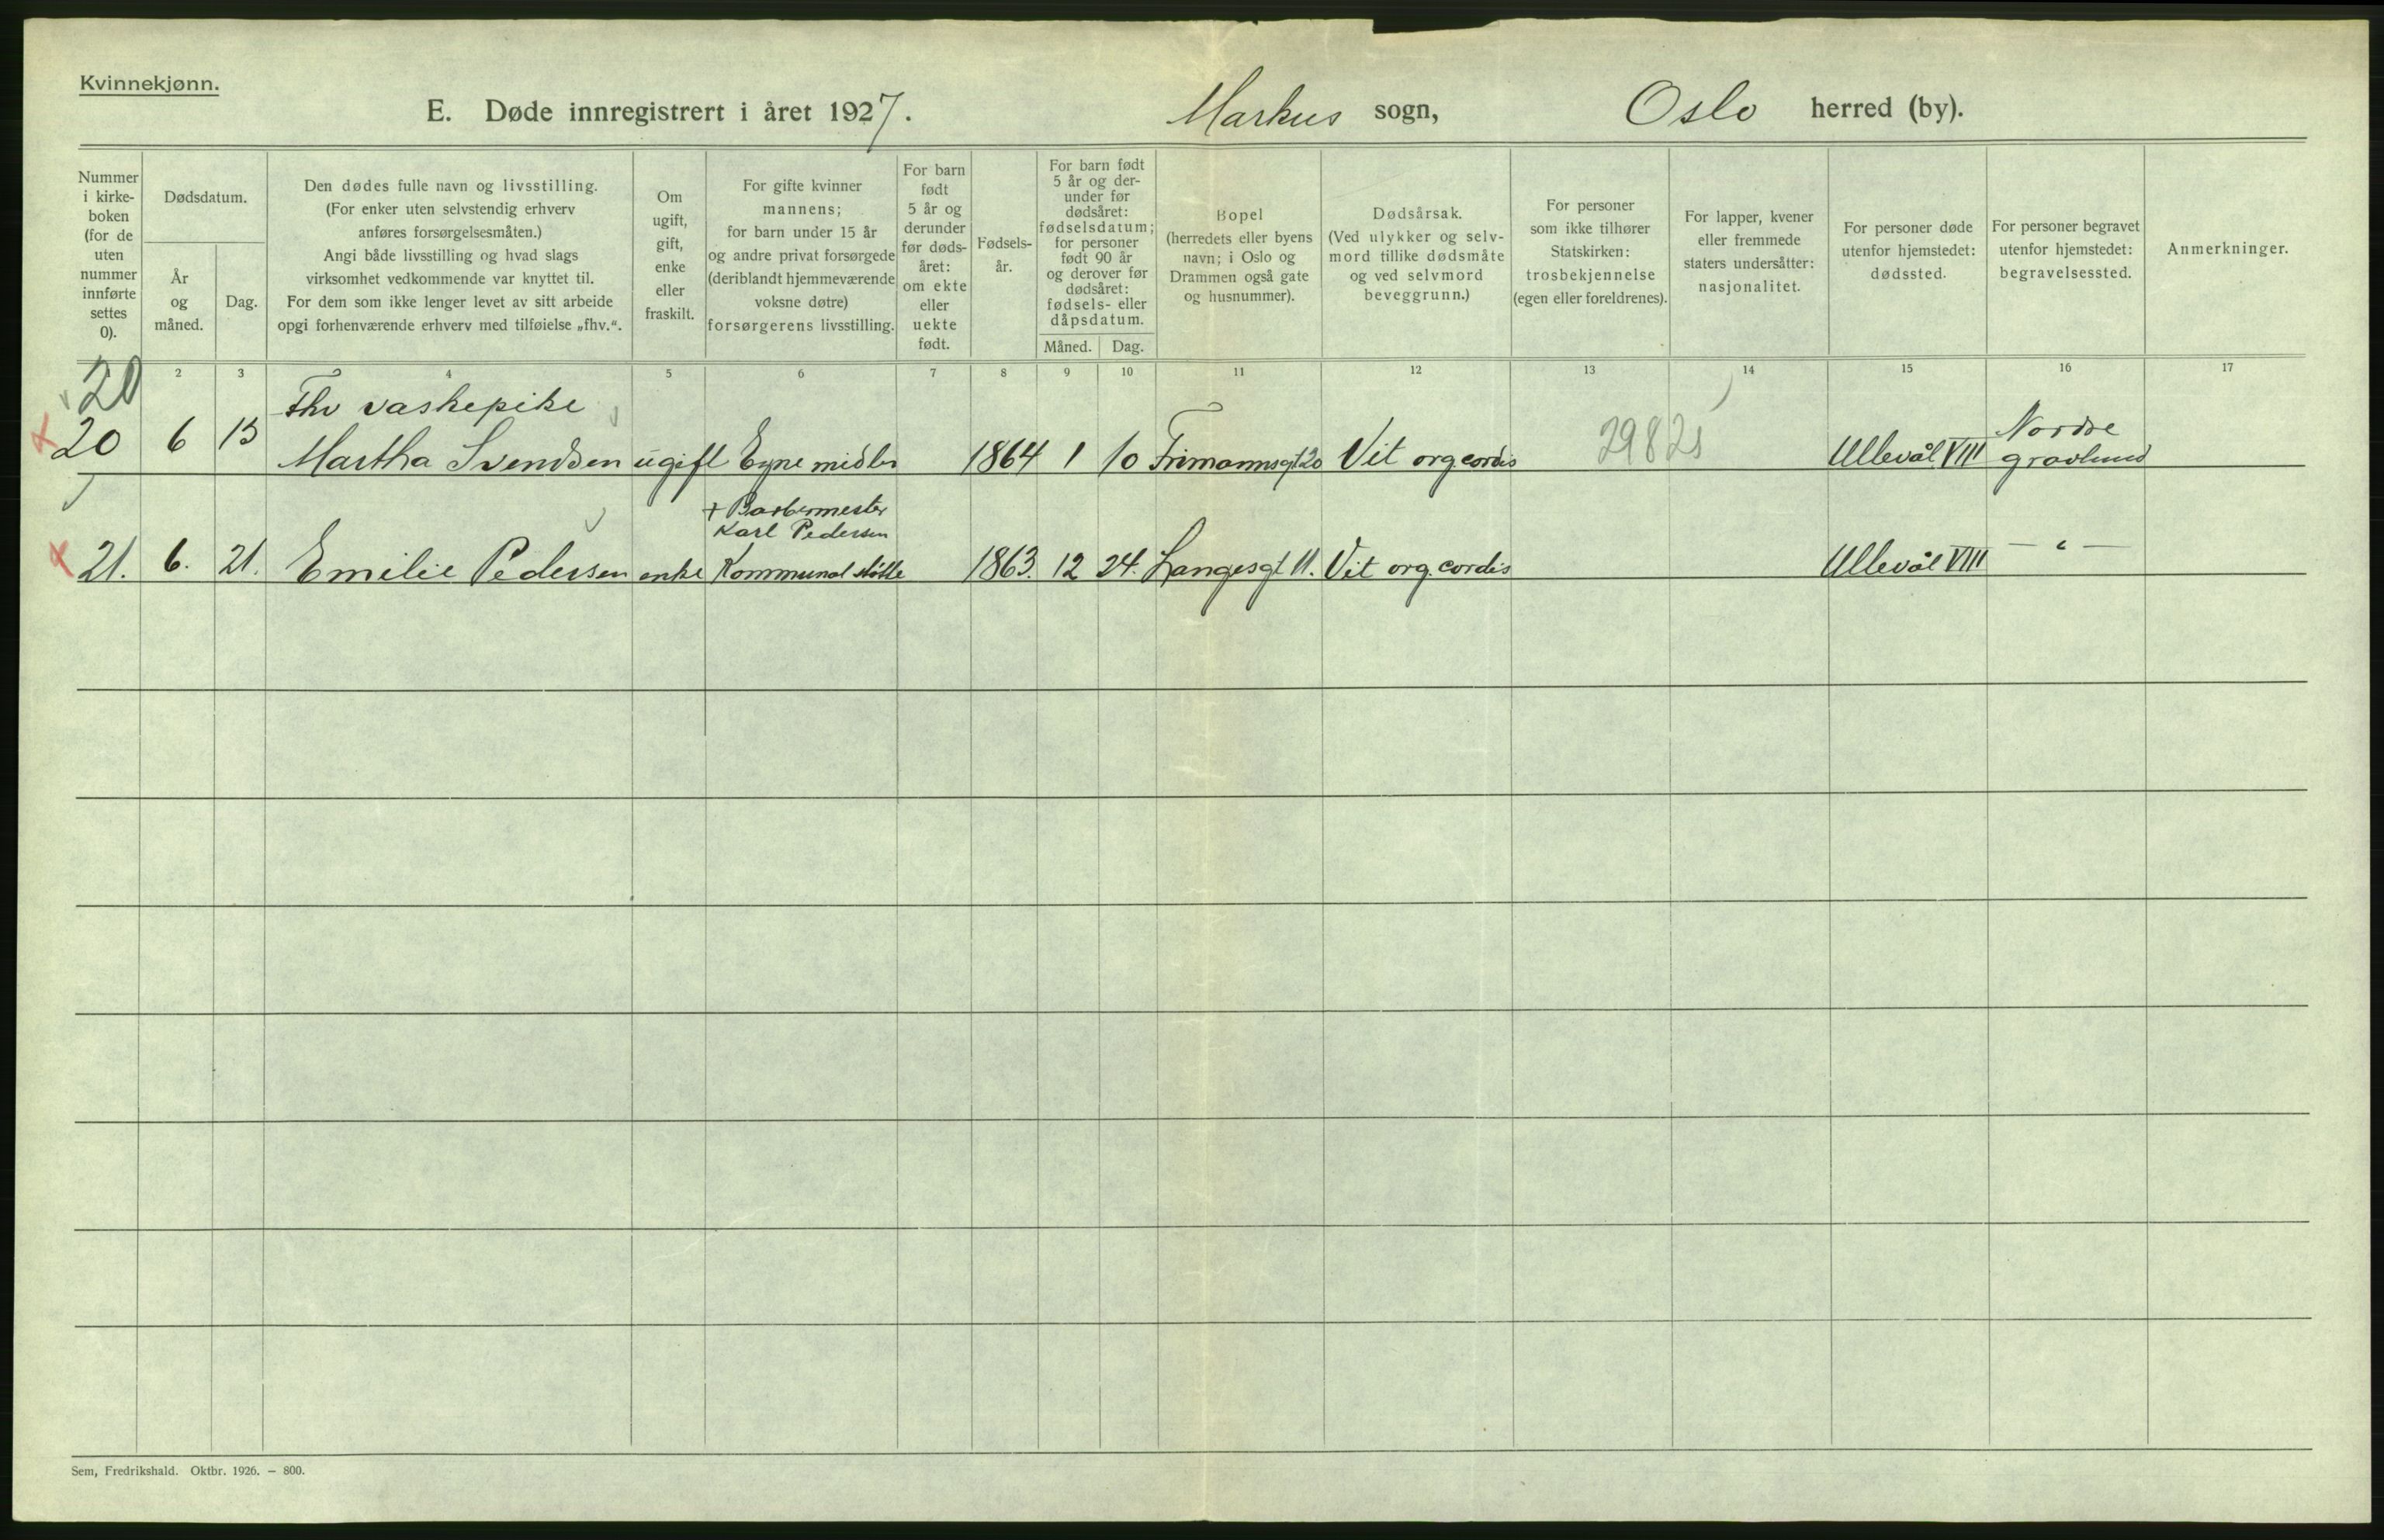 Kvinnekjønn.
E. Døde innregistrert i året 1927.
Markus sogn,
Oslo herred (by).
Nummer
i kirke-
boken
(for de
uten
nummer
innførte
settes
0).
Dødsdatum.
År
og
måned.
Dag.
Den dødes fulle navn og livsstilling.
(For enker uten selvstendig erhverv
anføres forsørgelsesmåten.)
Angi både livsstilling og hvad slags
virksomhet vedkommende var knyttet til.
For dem som ikke lenger levet av sitt arbeide
opgi forhenværende erhverv med tilføielse „fhv.“.
Om
ugift,
gift,
enke
eller
fraskilt.
For gifte kvinner
mannens;
for barn under 15 år
og andre privat forsørgede
(deriblandt hjemmeværende
voksne døtre)
forsørgerens livsstilling.
For barn
født
5 år og
derunder
før døds-
året:
om ekte
eller
uekte
født.
Fødsels-
år.
For barn født
5 år og der-
under før
dødsåret:
fødselsdatum;
for personer
født 90 år
og derover før
dødsåret:
fødsels- eller
dåpsdatum.
Måned. Dag.
Bopel
(herredets eller byens
navn; i Oslo og
Drammen også gate
og husnummer).
Dødsårsak.
(Ved ulykker og selv-
mord tillike dødsmåte
og ved selvmord
beveggrunn.)
For personer
som ikke tilhører
Statskirken:
trosbekjennelse
(egen eller foreldrenes).
For lapper, kvener
eller fremmede
staters undersåtter:
nasjonalitet.
For personer døde
utenfor hjemstedet:
dødssted.
For personer begravet
utenfor hjemstedet:
begravelsessted.
Anmerkninger.
2 3 4 5 6 7 8 9 10 11 12 13 14 15 16 17
20
Fhv vaskepike
Nordre
20 6 13 Martha Svendsen ugift Egne midler 1864 1 10 Frimannsgt 20 Vit org cordis 29825 Ullevål VIII gravlund
+ Barbermester
Karl Pedersen
21. 6. 21. Emilie Pedersen enke Kommunal støtte 1863. 12 24. Langesgt 11. Vit org. cordis Ullevål VIII — " —
Sem, Fredrikshald. Oktbr. 1926. — 800.